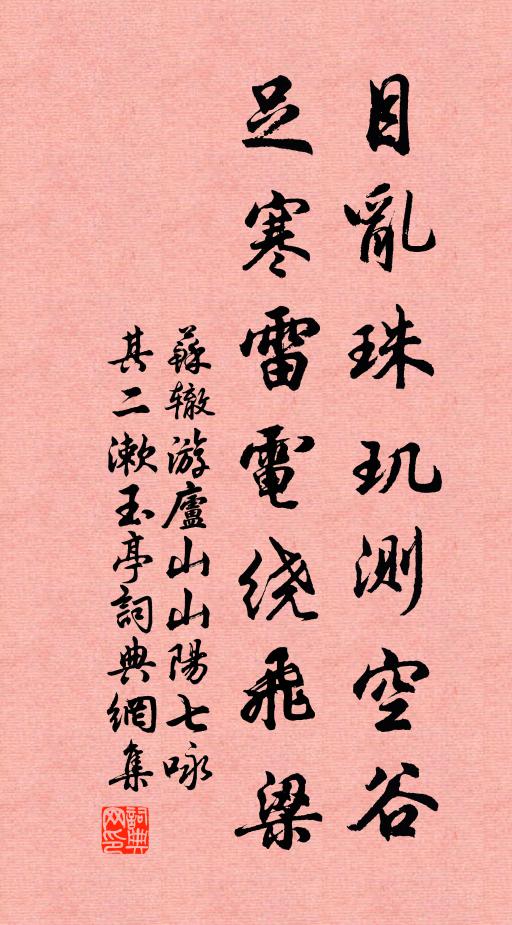 目亂珠玑测空谷
足寒雷電绕飛梁
蘇辙游廬山山陽七咏
其二漱玉亭詞典網集
詞典网印